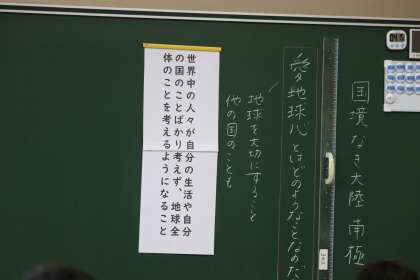 国境なき大陸 南極
愛地球心とはどのようなことなのだ
地球を大切にすること
他の国のことも
世界中の人々が自分の生活や自分
の国のことばかり考えず、地球全
体のことを考えるようになること